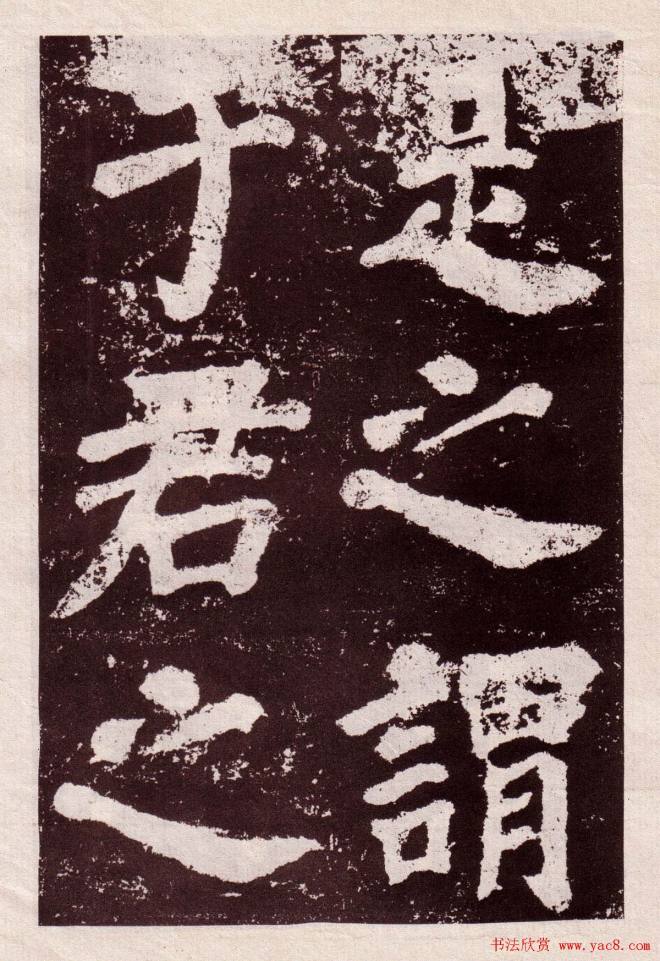 是之謂
乎君之
书法欣赏 www.yac8.com